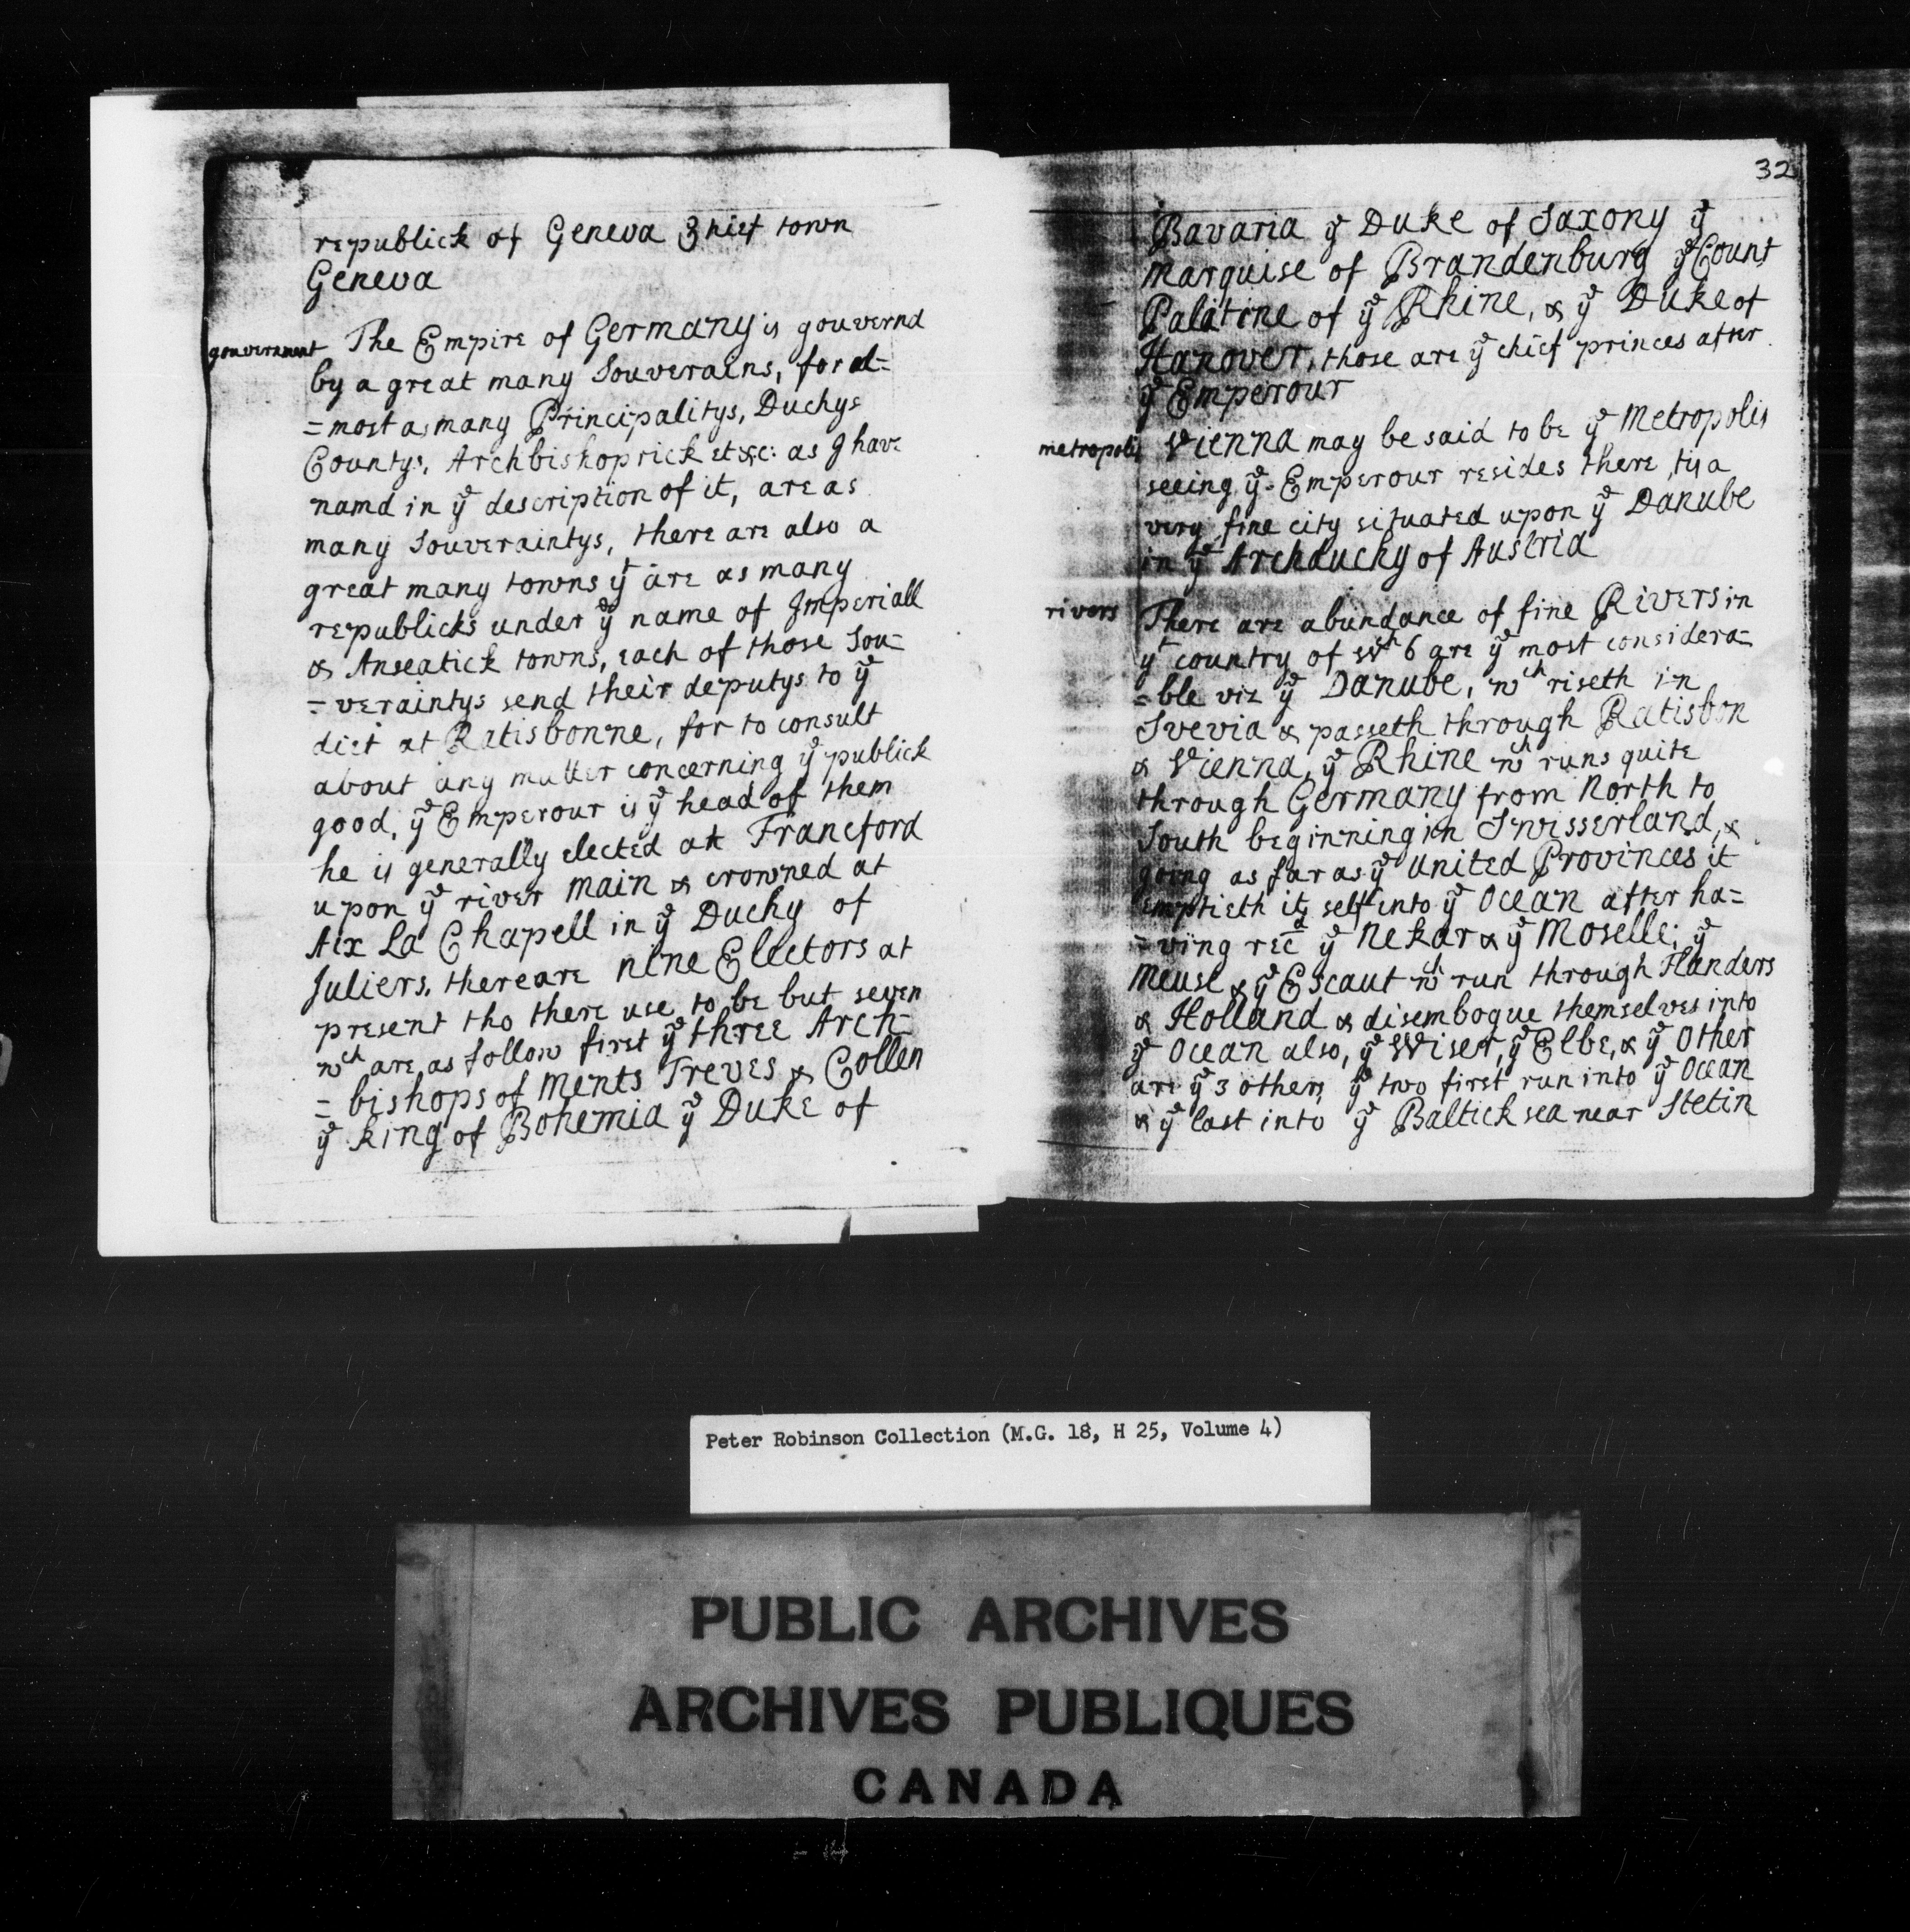 republick of Geneva Chief town
Geneva
gouvernment
The Empire of Germany is gouvernd
by a great many Souverains, for al=
=most as many Principalitys, Duchys
Countys, Archbishoprick et&c: as I have
namd in ye description of it, are as
many Souveraintys, there are also a
great many towns yt are as many
republicks under ye name of Imperiall
& Anseatick towns, each of those Sou=
=veraintys send their deputys to ye
diet at Ratisbonne, for to consult
about any matter concerning ye publick
good, ye Emperour is ye head of them
he is generally elected at Francford
upon ye river Main & crowned at
Aix La Chapell in ye Duchy of
Juliers. there are nine Electors at
present tho there use to be but seven
wch are as follow first ye three Arch=
=bishops of Ments Treves & Collen
ye king of Bohemia ye Duke of
32
Bavaria ye Duke of Saxony ye
Marquise of Brandenburg ye Count
Palatine of ye Rhine, & ye Duke of
Hanover, those are ye chief princes after
ye Emperour
metropolis
Vienna may be said to be ye Metropolis
seeing ye Emperour resides there, tis a
very fine city situated upon ye Danube
in ye Archduchy of Austria
rivers
There are abundance of fine Rivers in
yt country of wch 6 are ye most considera=
=ble viz ye Danube, wch riseth in
Svevia & passeth through Ratisbon
& Vienna, ye Rhine wch runs quite
through Germany from North to
South beginning in Swisserland, &
going as far as ye United Provinces it
emptieth its self into ye Ocean after ha=
=ving recd ye Nekar & ye Moselle; ye
Meuse & ye Escaut wch run through Flanders
& Holland & disembogue themselves into
ye Ocean also, ye Wiser, ye Elbe, & ye Other
are ye 3 others ye two first run into ye Ocean
& ye last into ye Baltick sea near Stetin
Peter Robinson Collection (M.G. 18, H 25, Volume 4)
PUBLIC ARCHIVES
ARCHIVES PUBLIQUES
CANADA